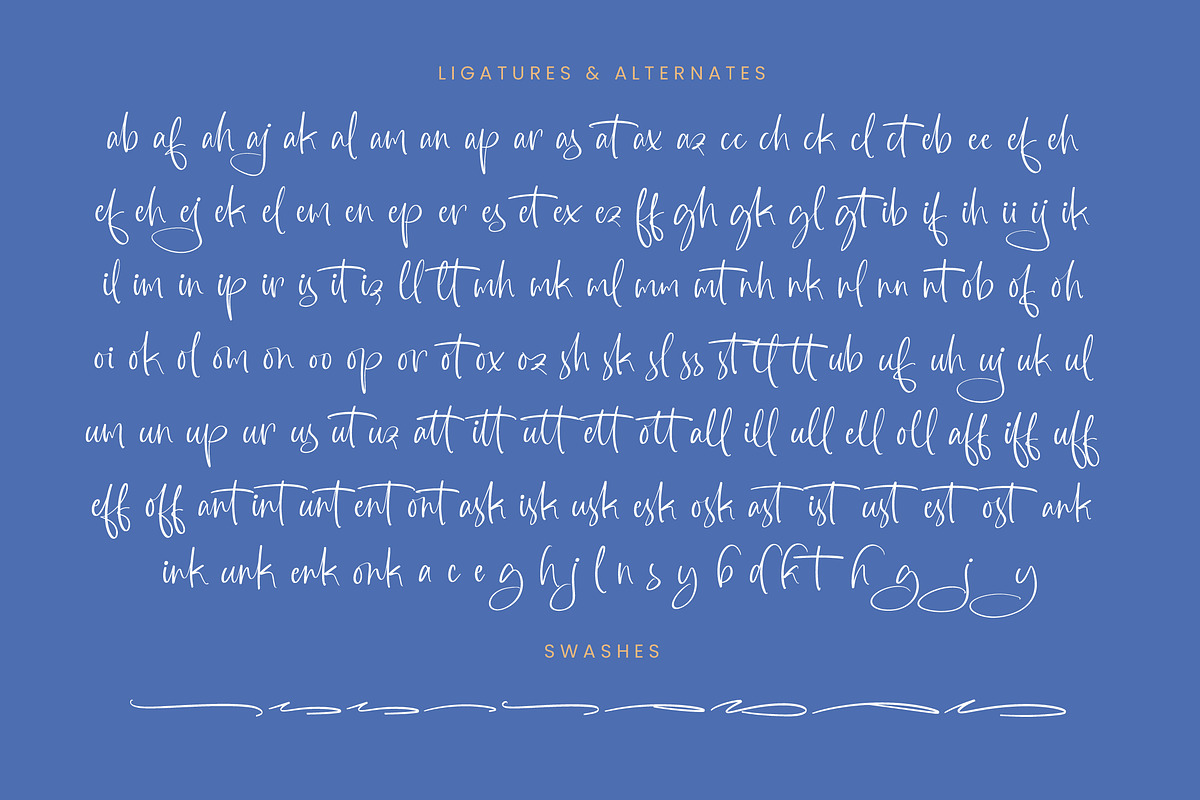 LIGATURES & ALTERNATES
ab af ah aj ak al am an ap ar as at ax az cc ch ck cl ct eb ee ef eh
ef eh ej ek el em en ep er es et ex ez ff gh gk gl gt ib if ih ii ij ik
il im in ip ir is it iz ll lt mh mk ml mm mt nh nk nl nn nt ob of oh
oi ok ol om on oo op or ot ox oz sh sk sl ss st tl tt ub uf uh uj uk ul
um un up ur us ut uz att itt utt ett ott all ill ull ell oll aff iff uff
eff off ant int unt ent ont ask isk usk esk osk ast ist ust est ost ank
ink unk enk onk a c e g h j l n s y b d k t h g j y
SWASHES